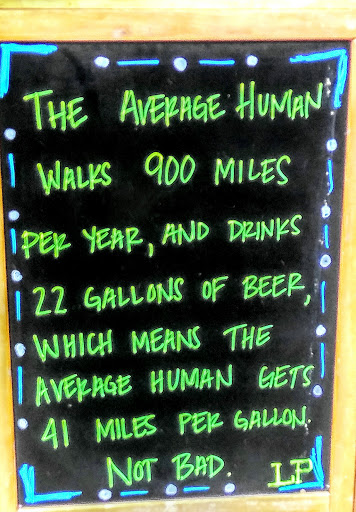 THE AVERAGE HUMAN
WALKS 900 MILES
PER YEAR, AND DRINKS
22 GALLONS OF BEER,
WHICH MEANS THE
AVERAGE HUMAN GETS
41 MILES PER GALLON.
NOT BAD.
LP